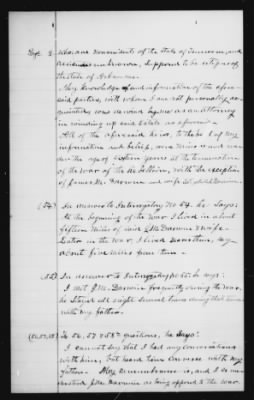 who are nonresidents of the state of Tennessee, and
residence unknown, supposed to be citizens of
the state of Arkansas.
My knowledge of and information of the afore
said parties, with whom I am not personally ac
quainted, was as an attorney
in winding up said estate as aforesaid.
All of the aforesaid heirs, to the best of my
information and belief, were minors and un
der the age of years at the termination
of the war of the rebellion, with the exception
of James M. Dawson and wife
(54) In answer to Interrogatory No 54. he says:
At the beginning of the War I lived in about
fifteen miles of said J.M. Dawson & wife.
Later in the War I lived
about five miles from them.
(55) In answer to Interrogatory no 55. he says:
I met J.M. Dawson frequently during the war,
he staid all night several times during that time
with my father.
(56,57,58) To 56, 57 & 58th questions, he says:
I cannot say that I had any conversations
with him, but heard him converse with my
father. My remembrance is, and I un
derstood J.M. Dawson as being opposed to the war.